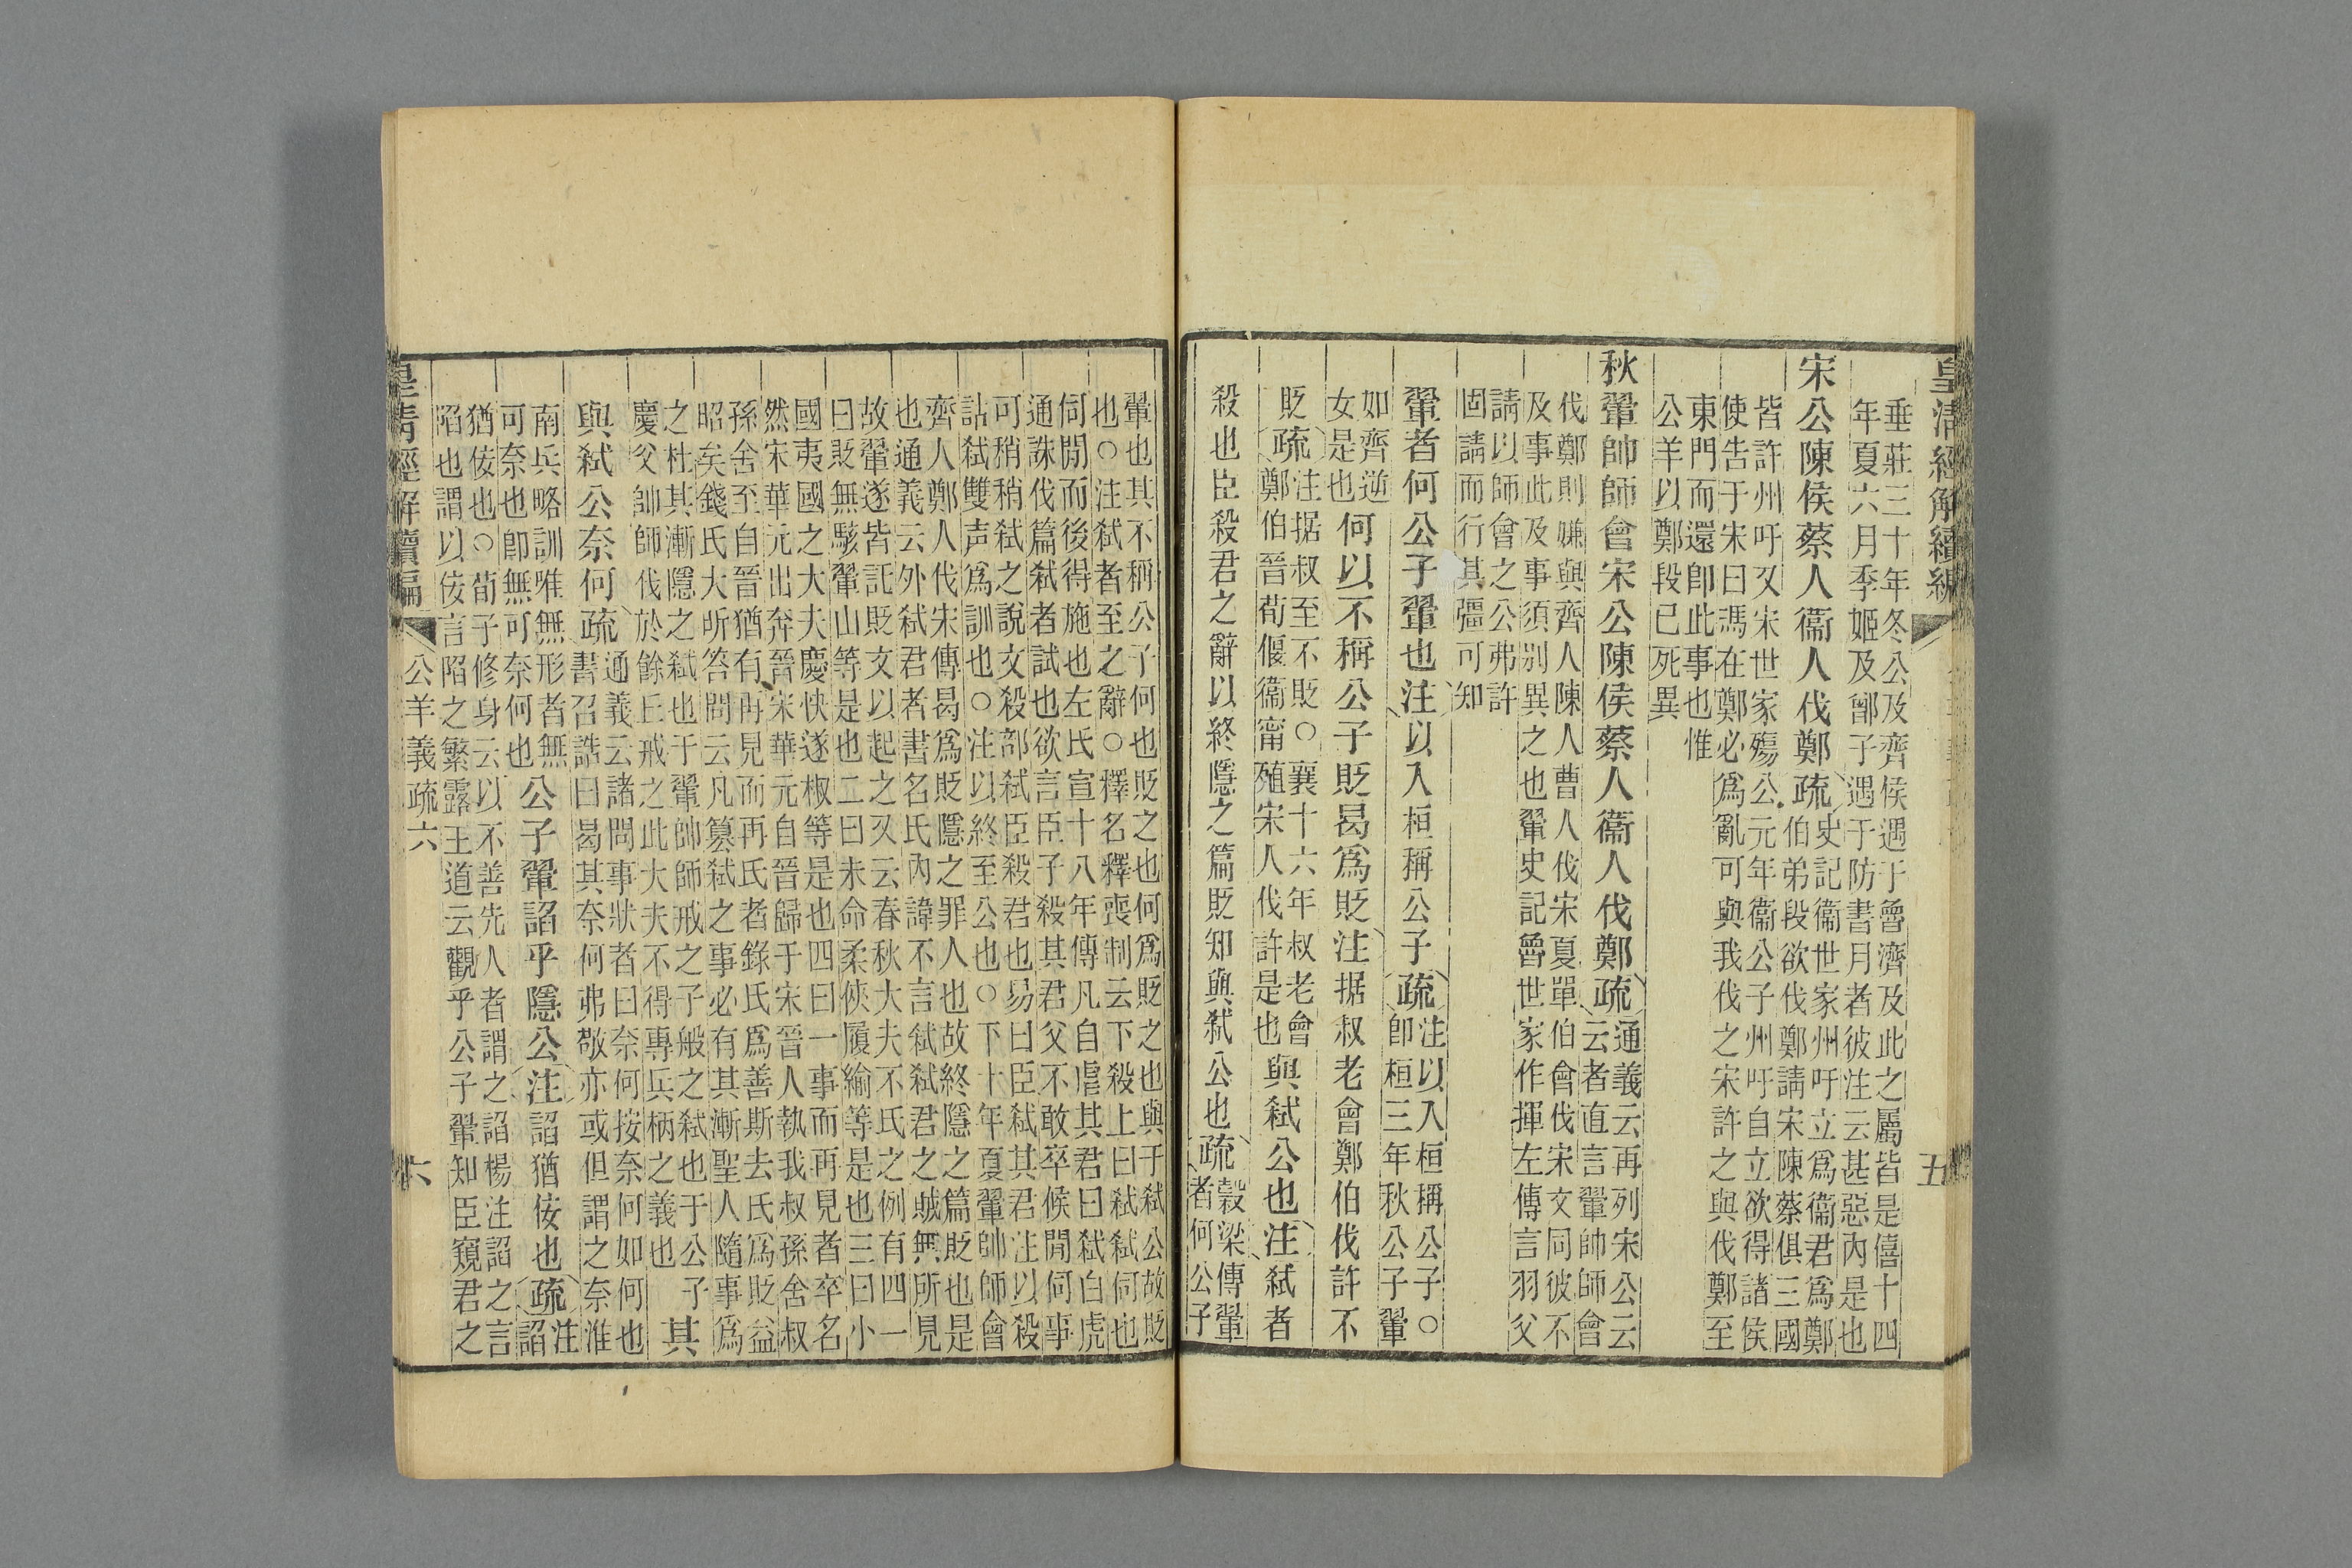 皇清經解續編
五
垂莊三十年冬公及齊侯遇于魯濟及此之屬皆是僖十四
年夏六月季姬及鄫子遇于防書月者彼注云甚惡內是也
宋公陳侯蔡人衞人伐鄭疏史記衞世家州吁立爲衞君爲鄭
伯弟段欲伐鄭請宋陳蔡俱三國
皆許州吁又宋世家殤公元年衞公子州吁自立欲得諸侯
使告于宋曰馮在鄭必爲亂可與我伐之宋許之與伐鄭至
東門而還卽此事也惟
公羊以鄭段已死異
秋翬帥師會宋公陳侯蔡人衞人伐鄭疏通義云再列宋公云
云者直言翬帥師會
伐鄭則嫌與齊人陳人曹人伐宋夏單伯會伐宋文同彼不
及事此及事須別異之也翬史記魯世家作揮左傳言羽父
請以師會之公弗許
固請而行其彊可知
翬者何公子翬也注以入桓稱公子疏注以入桓稱公子○
卽桓三年秋公子翬
如齊逆
女是也何以不稱公子貶曷爲貶注据叔老會鄭伯伐許不
貶疏注据叔至不貶○襄十六年叔老會
鄭伯晉荀偃衞甯殖宋人伐許是也與弑公也注弑者
殺也臣殺君之辭以終隱之篇貶知與弑公也疏穀梁傳翬
者何公子
翬也其不稱公子何也貶之也何爲貶之也與于弑公故貶
也○注弑者至之辭○釋名釋喪制云下殺上曰弑弑伺也
伺閒而後得施也左氏宣十八年傳凡自虐其君曰弑白虎
通誅伐篇弑者試也欲言臣子殺其君父不敢卒候閒伺事
可稍稍弑之說文殺部弑臣殺君也易曰臣弑其君注以殺
詁弑雙声爲訓也○注以終至公也○下十年夏翬帥師會
齊人鄭人伐宋傳曷爲貶隱之罪人也故終隱之篇貶也是
也通義云外弑君者書名氏內諱不言弑弑君之賊無所見
故翬遂皆託貶文以起之又云春秋大夫不氏之例有四一
曰貶無駭翬山等是也二曰未命柔俠履緰等是也三曰小
國夷國之大夫慶怏遂椒等是也四曰一事而再見者卒名
然宋華元出奔晉宋華元自晉歸于宋晉人執我叔孫舍叔
孫舍至自晉猶有再見而再氏者錄氏爲善斯去氏爲貶益
昭矣錢氏大昕答問云凡篡弑之事必有其漸聖人隨事爲
之杜其漸隱之弑也于翬帥師戒之子般之弑也于公子
慶父帥師伐於餘丘戒之此大夫不得專兵柄之義也其
與弑公奈何疏通義云諸問事狀者曰奈何按奈何如何也
書召誥曰曷其奈何弗敬亦或但謂之奈淮
南兵略訓唯無形者無
可奈也卽無可奈何也公子翬諂乎隱公注諂猶佞也疏注
諂
猶佞也○荀子修身云以不善先人者謂之諂楊注諂之言
陷也謂以佞言陷之繁露王道云觀乎公子翬知臣窺君之
皇清經解續編
公羊義疏六
六